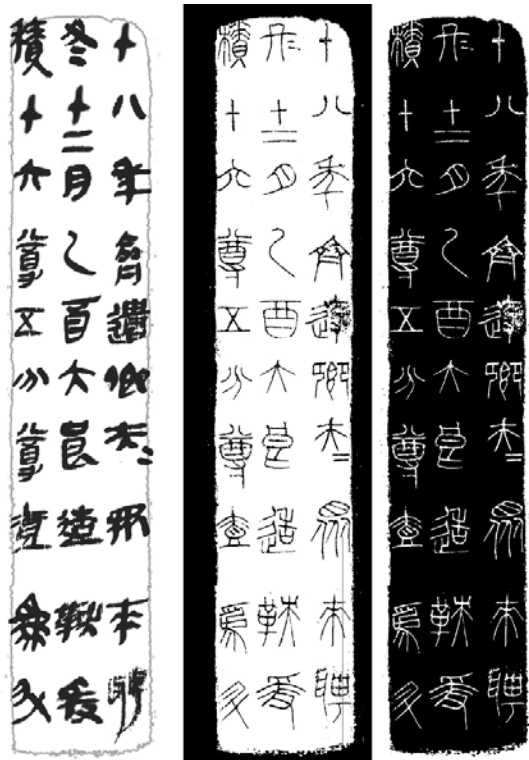 十八年齊遣卿夫=眾來聘
冬十二月乙酉大良造鞅爰
積十六尊五分尊壹為升
十八年齊遣卿夫=眾來聘
冬十二月乙酉大良造鞅爰
積十六尊五分尊壹為升
十八年齊遣卿夫=眾來聘
冬十二月乙酉大良造鞅爰
積十六尊五分尊壹為升